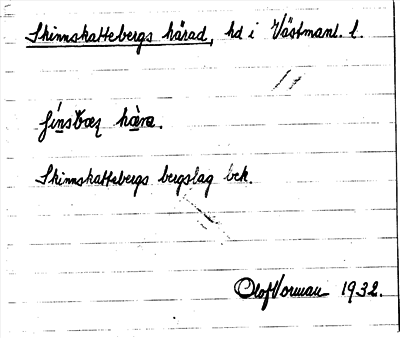 Skinnskattebergs härad, hd i Västmanl. l.
hæra.
Skinnskattebergs bergslag bek.
Olof Vorman 1932.